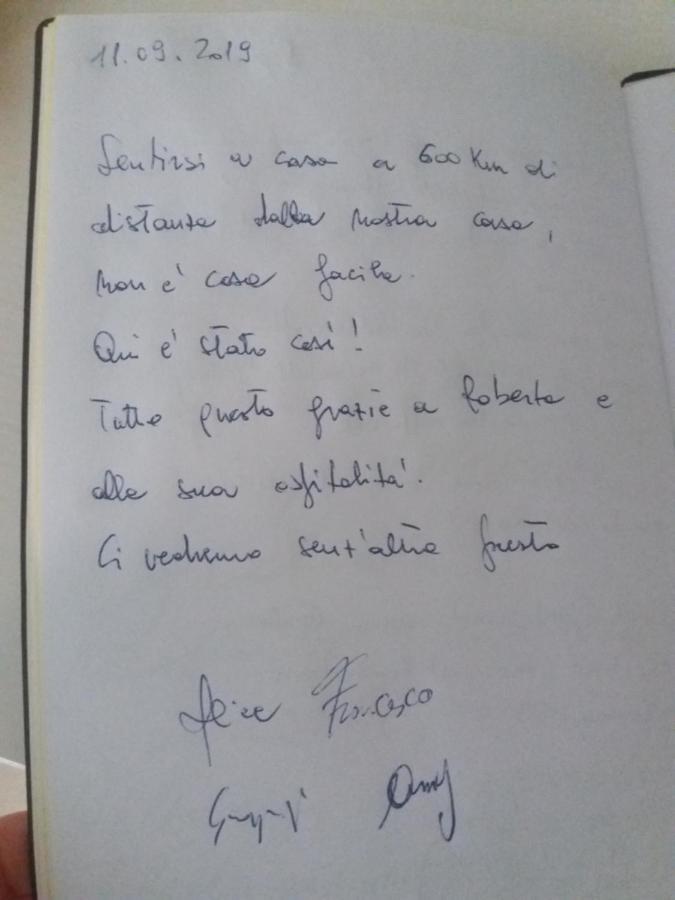 11.09.2019
Sentirsi a casa a 600 Km di
distanza dalla nostra casa,
non è cosa facile.
Qui è stato così!
Tutto questo grazie a Roberta e
alla sua ospitalità.
Ci vedremo senz'altro presto
Alice Francesco